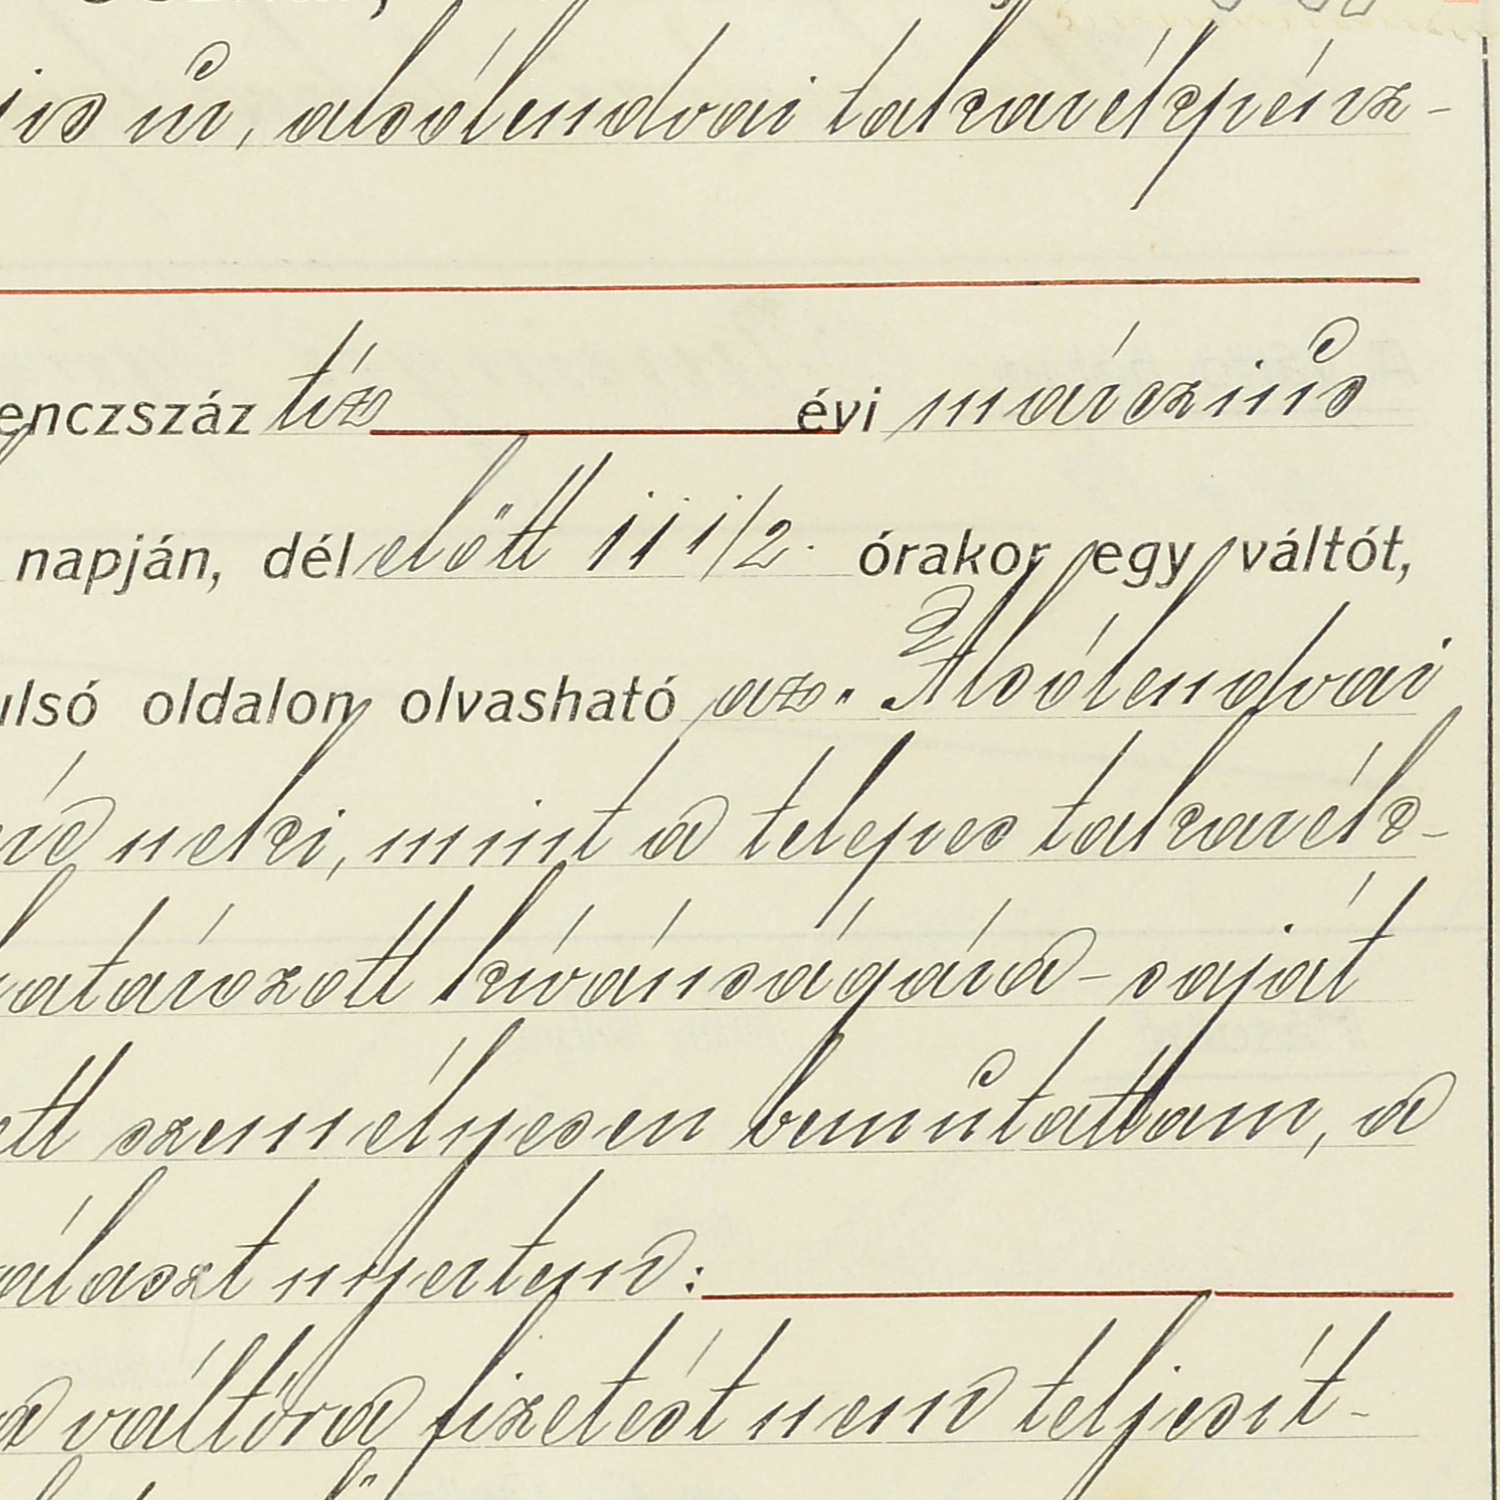 is úr, alsólendvai takarékpénz-
enczszáz tíz évi márczius
napján, délelőtt 11 1/2. órakor egy váltót,
ulsó oldalon olvasható az. Alsólendvai
neki, mint a telepes takarék-
határozott kívánságára - saját
ett személyesen bemutattam, a
választ nyertem:
a váltóra fizetést nem teljesít-